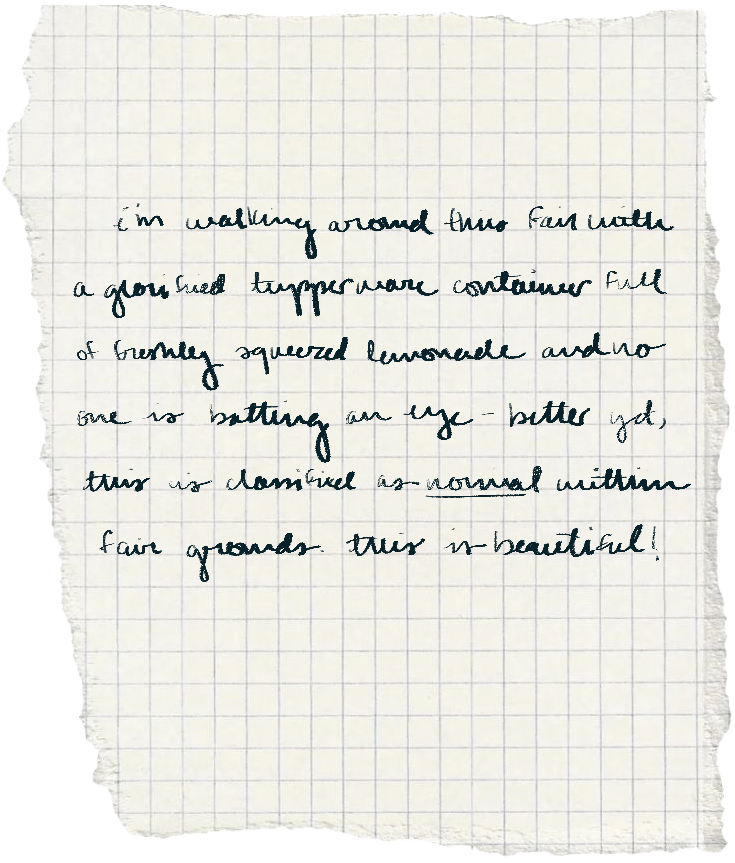 i'm walking around this fair with
a glorified tupperware container full
of freshley squeezed lemonade and no
one is batting an eye - better yet,
this is classified as normal within
fair grounds. this is beautiful!